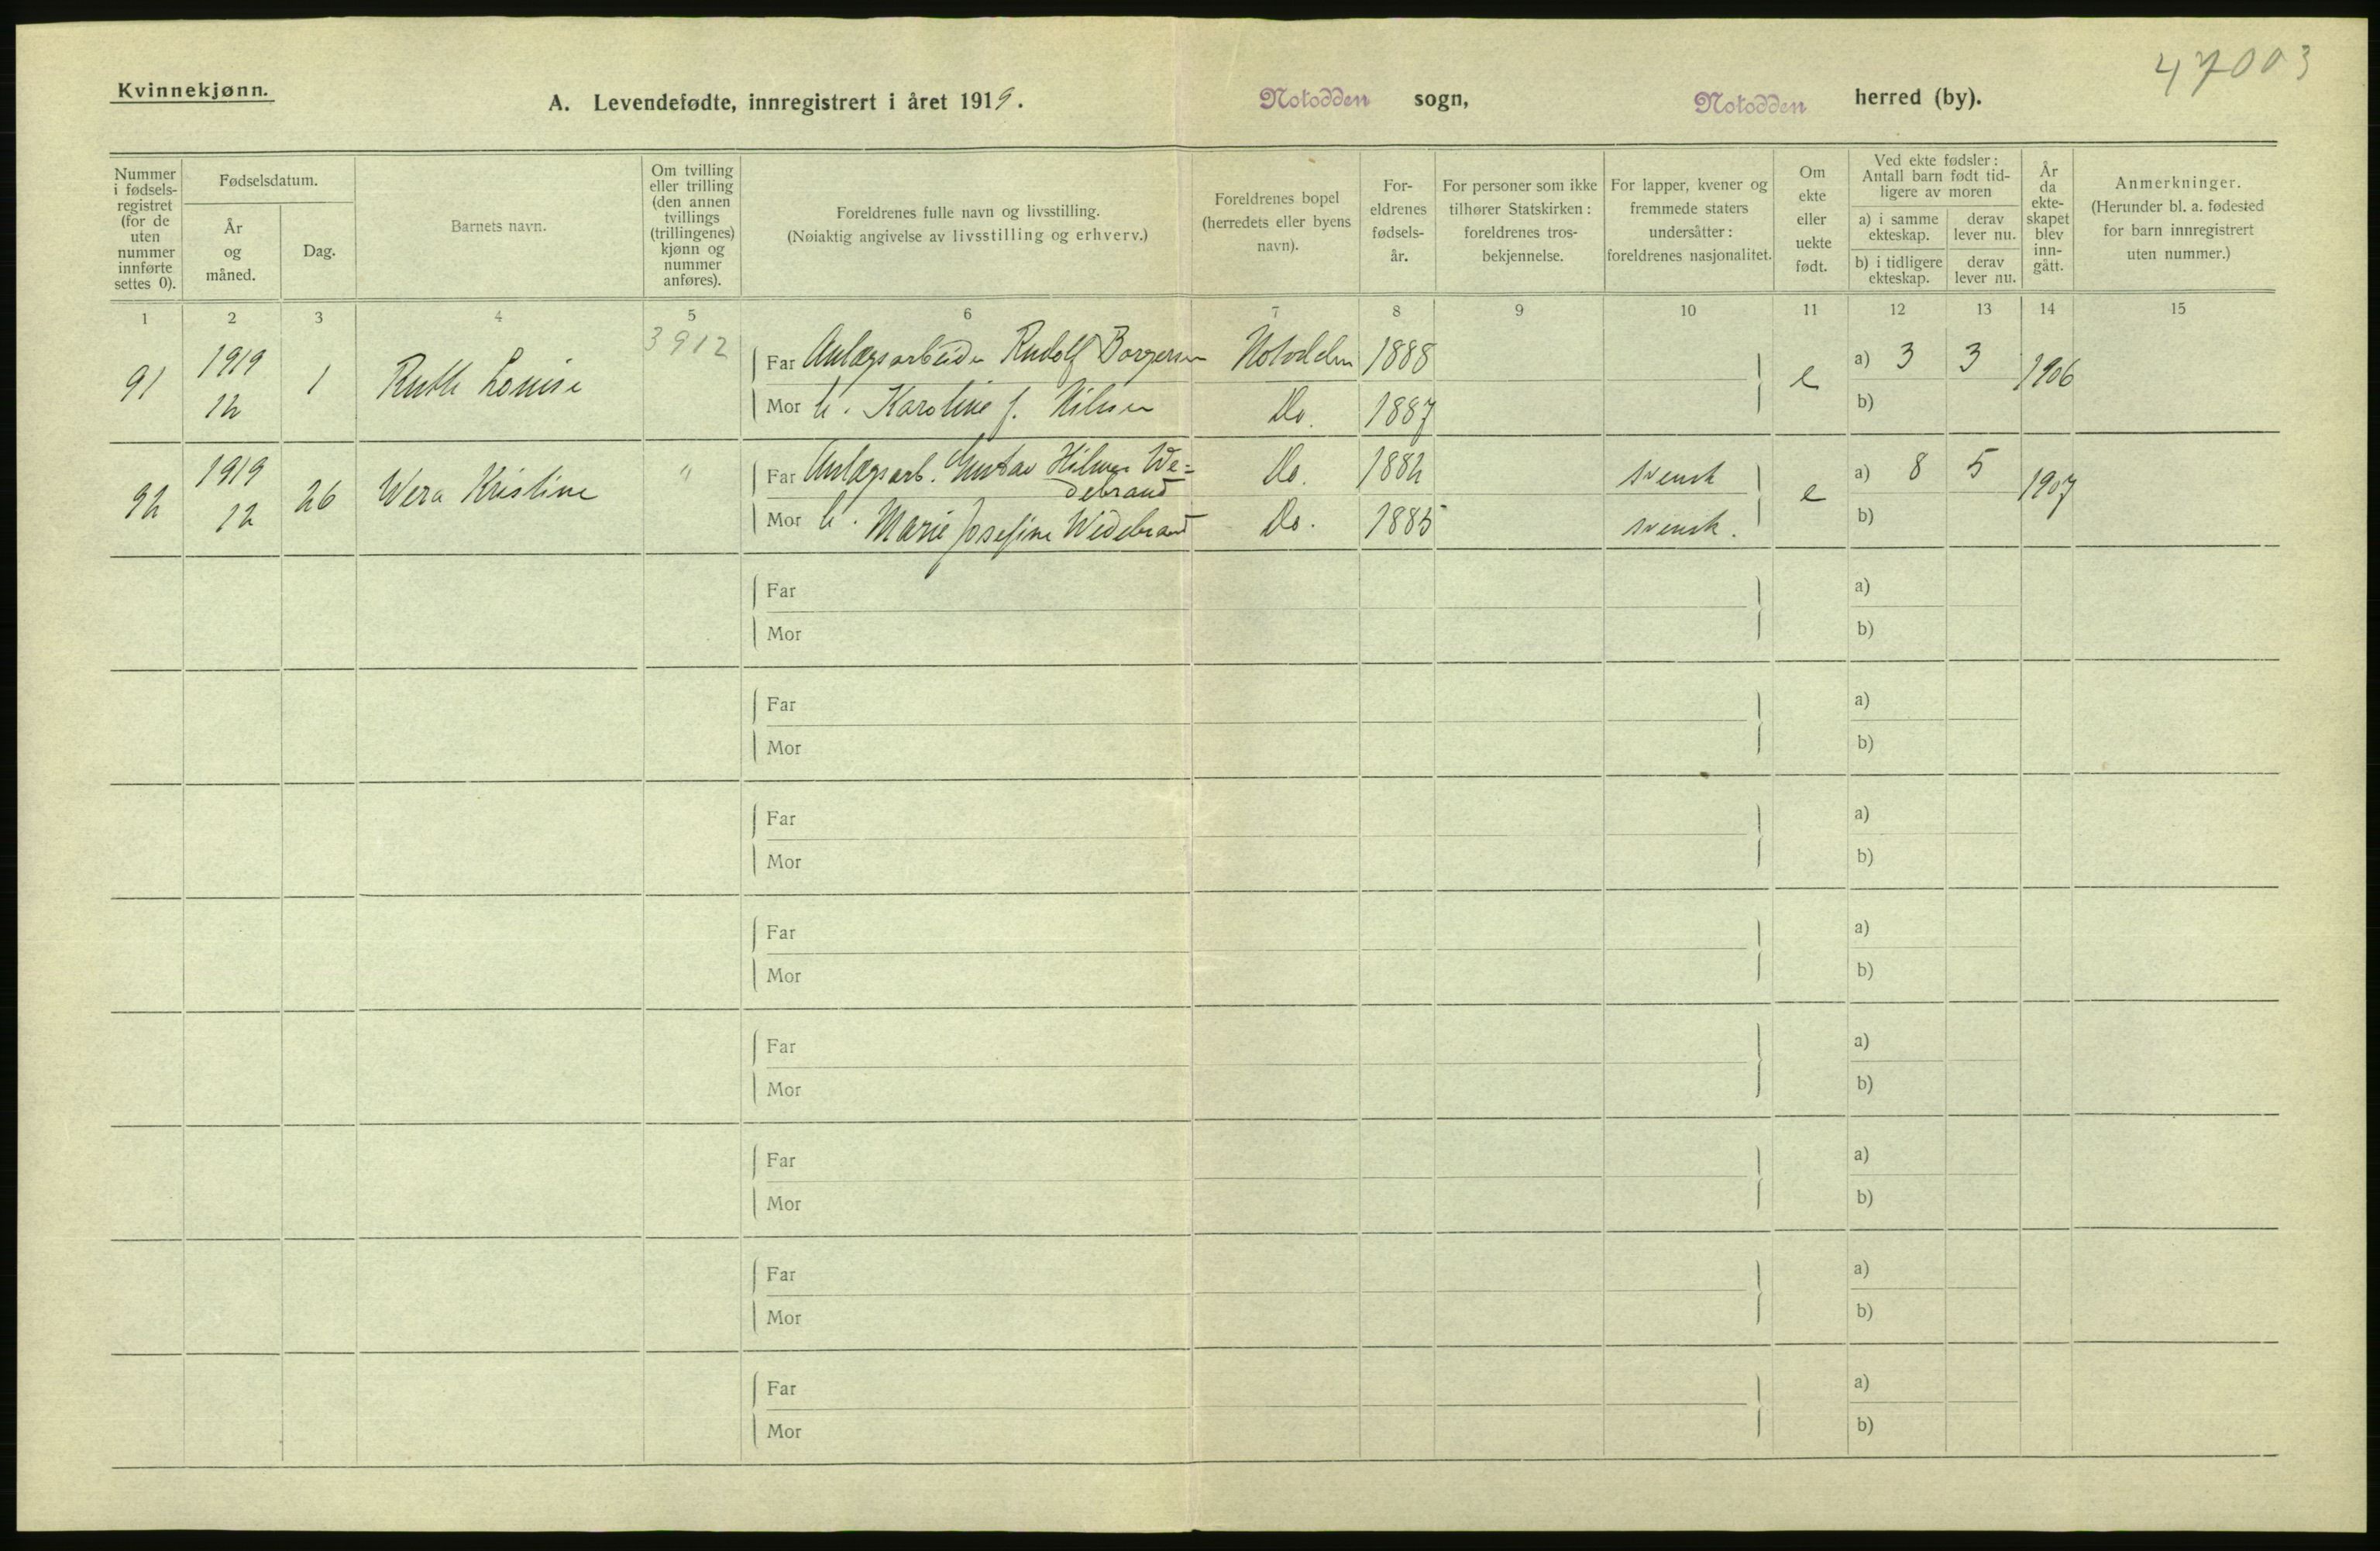 47003
Kvinnekjønn.
A. Levendefødte, innregistrert i året 1919. Notodden sogn, Notodden herred (by).
Nummer i fødsels-registret (for de uten nummer innførte settes 0).
Fødselsdatum.
År og måned.
Dag.
Barnets navn.
Om tvilling eller trilling (den annen tvillings (trillingenes) kjønn og nummer anføres).
Foreldrenes fulle navn og livsstilling.
(Nøiaktig angivelse av livsstilling og erhverv.)
Foreldrenes bopel (herredets eller byens navn).
For-eldrenes fødsels-år.
For personer som ikke tilhører Statskirken: foreldrenes tros-bekjennelse.
For lapper, kvener og fremmede staters undersåtter: foreldrenes nasjonalitet.
Om ekte eller uekte født.
Ved ekte fødsler: Antall barn født tid-ligere av moren
a) i samme ekteskap. derav lever nu.
b) i tidligere ekteskap. derav lever nu.
År da ekte-skapet blev inn-gått.
Anmerkninger.
(Herunder bl. a. fødested for barn innregistrert uten nummer.)
1 2 3 4 5 6 7 8 9 10 11 12 13 14 15
3912
91 1919 12 1 Ruth Louise Far Anlægsarbeider Rudolf Borgersen Notodden 1888 e a) 3 3 1906
Mor h. Karoline f. Nilsen Do. 1887 b)
92 1919 12 26 Wera Kristine " Far Anlægsarb. Gustav Hilmer We=
debrand Do. 1882 svensk e a) 8 5 1907
Mor h. Marie Josefine Wedebrand Do. 1885 svensk. b)
Far a)
Mor b)
Far a)
Mor b)
Far a)
Mor b)
Far a)
Mor b)
Far a)
Mor b)
Far a)
Mor b)
Far a)
Mor b)
Far a)
Mor b)